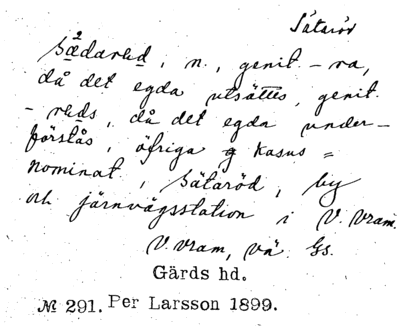 Sätaröd
Sådarød, n., genit. -ra,
då det egda utsättes, genit.
-røds, då det egda under-
förstås, öfriga kasus =
nominat, Sätaröd, by
och järnvägsstation i V. Vram.
V. Vram, vä. Gs.
Gärds hd.
№ 291. Per Larsson 1899.